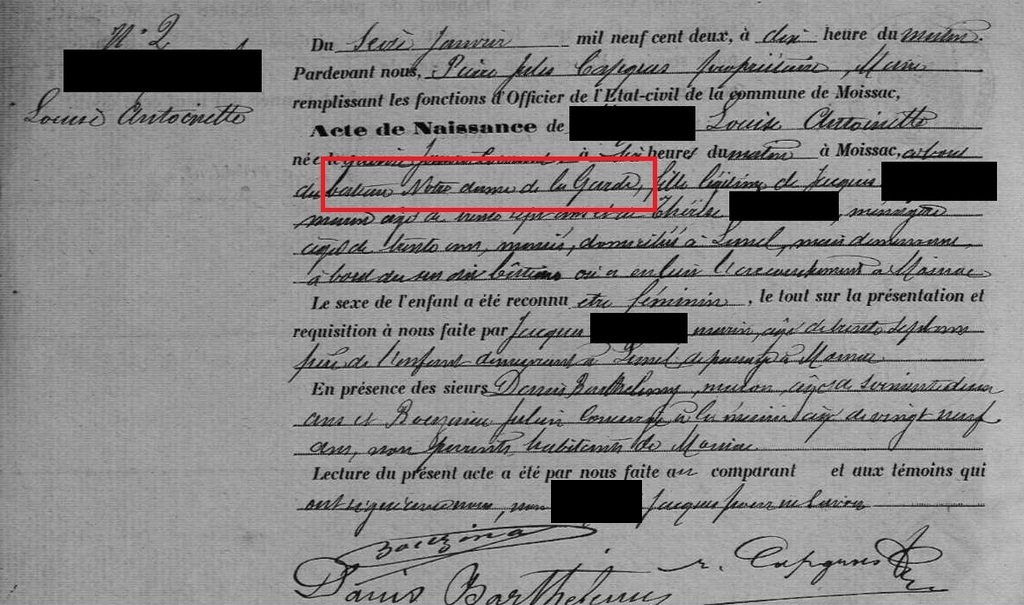 N° 2
Louise Antoinette
Du Seize Janvier mil neuf cent deux, à dix heure du matin.
Pardevant nous, Pierre Jules Capgras propriétaire, Maire
remplissant les fonctions d'Officier de l'Etat-civil de la commune de Moissac,
Acte de Naissance de Louise Antoinette
née le quinze Janvier courant à six heures du matin à Moissac, à bord
du bateau Notre dame de la Garde, fille légitime de Jacques
marin âgé de trente sept ans et de Thérèse, ménagère
âgée de trente ans, mariés, domiciliés à Lunel, mais demeurant
à bord du sus dit où a eu lieu l'accouchement à Moissac
Le sexe de l'enfant a été reconnu être féminin, le tout sur la présentation et
requisition à nous faite par Jacques marin, âgé de trente sept ans
père de l'enfant demeurant à Lunel de passage à Moissac.
En présence des sieurs Denis Barthélemy, maçon âgé de soixante deux
ans et Bouzinac Julien Concierge à la mairie âgé de vingt neuf
ans, non parents habitants de Moissac
Lecture du présent acte a été par nous faite au comparant et aux témoins qui
ont signé avec nous, non Jacques pour ne savoir
Capgras
Denis Barthelemy